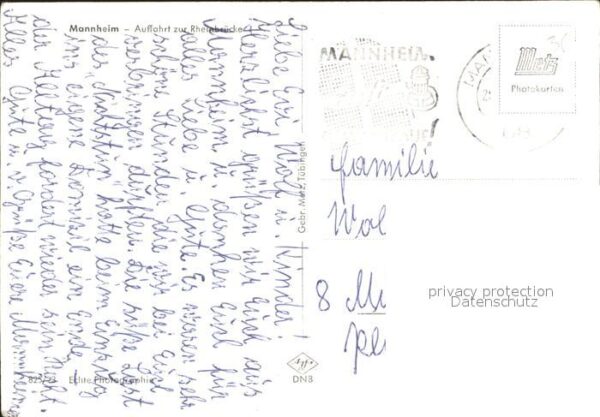 Mannheim – Auffahrt zur Rheinbrücke
Liebe Evi, Wolf u. Kinder!
Herzlichst grüßen wir Euch aus
Mannheim u. danken Euch für
alles Liebe u. Gute. Es waren sehr
schöne Stunden die wir bei Euch
verbringen durften. Die süße Last
der hatte beim Einzug
ins eigene Domizil ein Ende
der Alltag fordert wieder sein Recht.
Alles Gute u. v. Grüße Eure Mannheimer
825/21 Echte Photographie
Gebr. Metz, Tübingen
MANNHEIM
Metz
Photokarten
Familie
Wol
8 Mü
privacy protection
Datenschutz
DN3